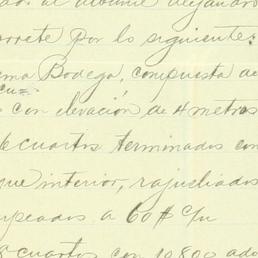 al albañil Alejandro
por lo siguiente:
Bodega, compuesta de
con elevación de 4 metros
cuartos terminados con
interior, rajueliados
a 60 $ c/u
cuartos con